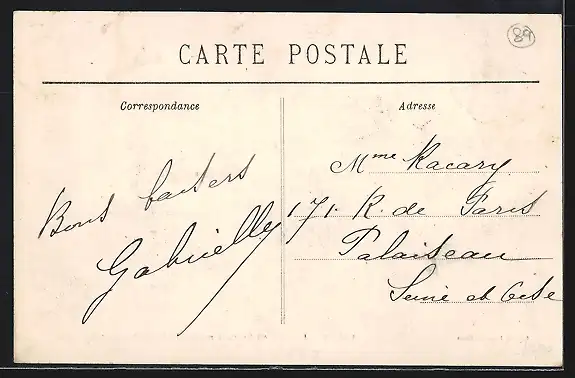 89
CARTE POSTALE
Correspondance
Bons baisers
Gabrielle
Adresse
Mme Racary
171. R. de Paris
Palaiseau
Seine et Oise